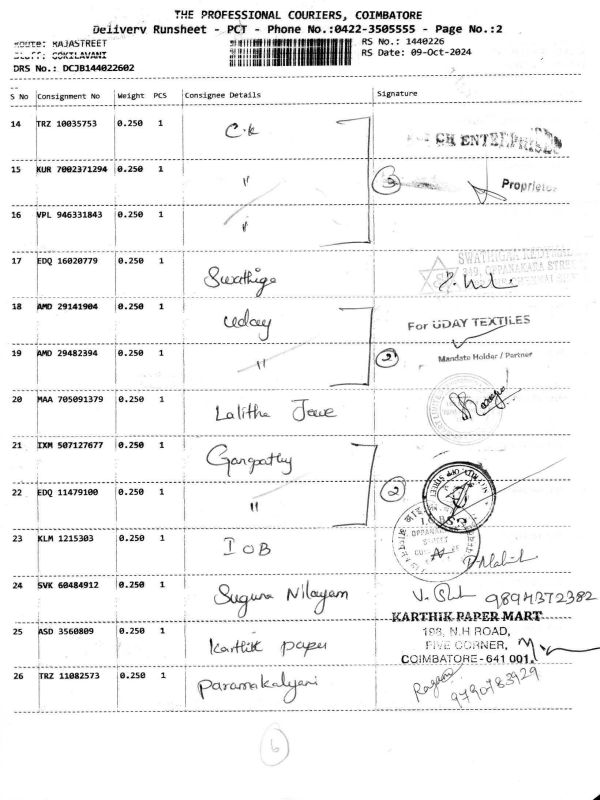 THE PROFESSIONAL COURIERS, COIMBATORE
Delivery Runsheet - PCT - Phone No.:0422-3505555 - Page No.:2
Route: RAJASTREET
RS No.: 1440226
Staff: GOKILAVANI
RS Date: 09-Oct-2024
DRS No.: DCJB144022602
S No Consignment No Weight PCS Consignee Details Signature
14 TRZ 10035753 0.250 1 C.K
ENTERPRISES
15 KUR 7002371294 0.250 1 " 3 Proprietor
16 VPL 946331843 0.250 1 "
17 EDQ 16020779 0.250 1 Swathiga
SWATHIGAA
OPPANAKARA STREET
18 AMD 29141904 0.250 1 Uday
For UDAY TEXTILES
19 AMD 29482394 0.250 1 " 2
Mandate Holder / Partner
20 MAA 705091379 0.250 1 Lalitha Jewe
21 IXM 507127677 0.250 1 Gangpathy
22 EDQ 11479100 0.250 1 " 2
23 KLM 1215303 0.250 1 IOB
OPPANAKARA
STREET
24 SVK 60484912 0.250 1 Suguna Nilayam 9894372382
25 ASD 3560809 0.250 1 Karthik paper
KARTHIK PAPER MART
198, N.H ROAD,
FIVE CORNER,
COIMBATORE - 641 001.
26 TRZ 11082573 0.250 1 Paramakalyani
9790783929
6